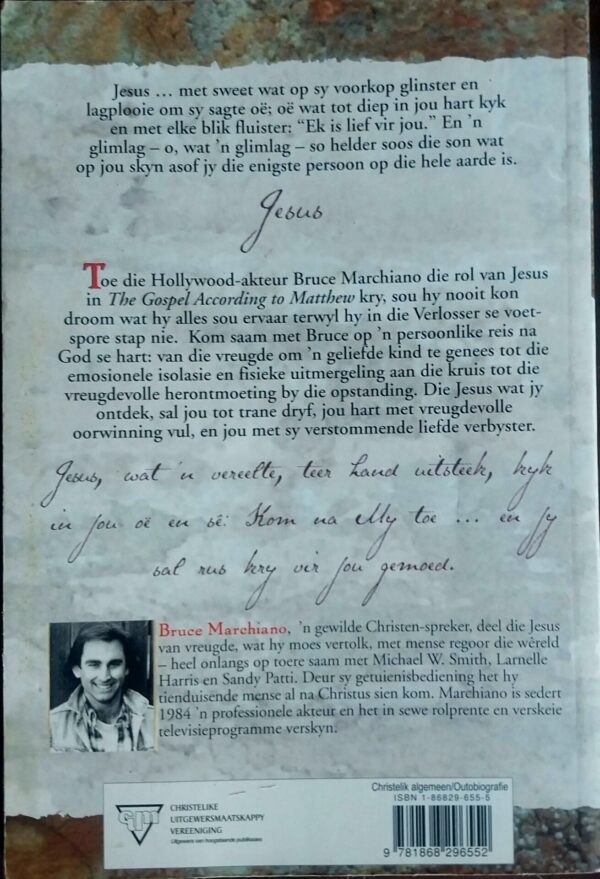 Jesus … met sweet wat op sy voorkop glinster en
lagplooie om sy sagte oë; oë wat tot diep in jou hart kyk
en met elke blik fluister: “Ek is lief vir jou.” En ’n
glimlag – o, wat ’n glimlag – so helder soos die son wat
op jou skyn asof jy die enigste persoon op die hele aarde is.
Jesus
Toe die Hollywood-akteur Bruce Marchiano die rol van Jesus
in The Gospel According to Matthew kry, sou hy nooit kon
droom wat hy alles sou ervaar terwyl hy in die Verlosser se voet-
spore stap nie. Kom saam met Bruce op ’n persoonlike reis na
God se hart: van die vreugde om ’n geliefde kind te genees tot die
emosionele isolasie en fisieke uitmergeling aan die kruis tot die
vreugdevolle herontmoeting by die opstanding. Die Jesus wat jy
ontdek, sal jou tot trane dryf, jou hart met vreugdevolle
oorwinning vul, en jou met sy verstommende liefde verbyster.
Jesus, wat ’n vereelte, teer hand uitsteek, kyk
in jou oë en sê: Kom na My toe … en jy
sal rus kry vir jou gemoed.
Bruce Marchiano, ’n gewilde Christen-spreker, deel die Jesus
van vreugde, wat hy moes vertolk, met mense regoor die wêreld
– heel onlangs op toere saam met Michael W. Smith, Larnelle
Harris en Sandy Patti. Deur sy getuienisbediening het hy
tienduisende mense al na Christus sien kom. Marchiano is sedert
1984 ’n professionele akteur en het in sewe rolprente en verskeie
televisieprogramme verskyn.
CHRISTELIKE
UITGEWERSMAATSKAPPY
VERENIGING
Uitgewers van hoogstaande publikasies
Christelik algemeen/Outobiografie
ISBN 1-86829-655-5
9 781868 296552